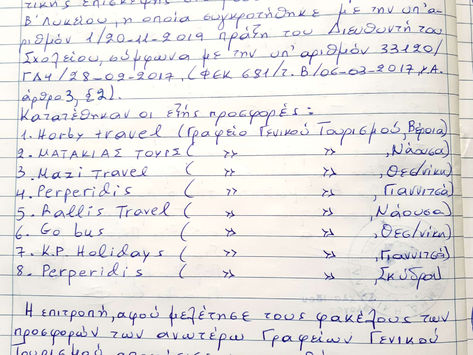 τικής επίσκεψης
Β΄ Λυκείου, η οποία συγκροτήθηκε με την υπ'α-
ριθμόν 1/20-11-2019 πράξη του Διευθυντή του
Σχολείου, σύμφωνα με την υπ'αριθμόν 33120/
ΓΔ4/28-02-2017, (ΦΕΚ 681/τ.Β/06-03-2017, κΑ.
άρθρο 3, §2).
Κατατέθηκαν οι εξής προσφορές:
1. Horby travel (Γραφείο Γενικού Τουρισμού, Βέροια)
2. ΜΑΤΑΚΙΑΣ ΤΟΥΡΣ ( » » , Νάουσα)
3. Mazi Travel ( » » , Θεσ/νίκη)
4. Perperidis ( » » , Γιαννιτσά)
5. Rallis Travel ( » » , Νάουσα)
6. Go bus ( » » , Θεσ/νίκη)
7. K.P. Holidays ( » » , Γιαννιτσά)
8. Perperidis ( » » , Σκύδρα)
Η επιτροπή, αφού μελέτησε τους φακέλους των
προσφορών των ανωτέρω Γραφείων Γενικού
Τουρισμού